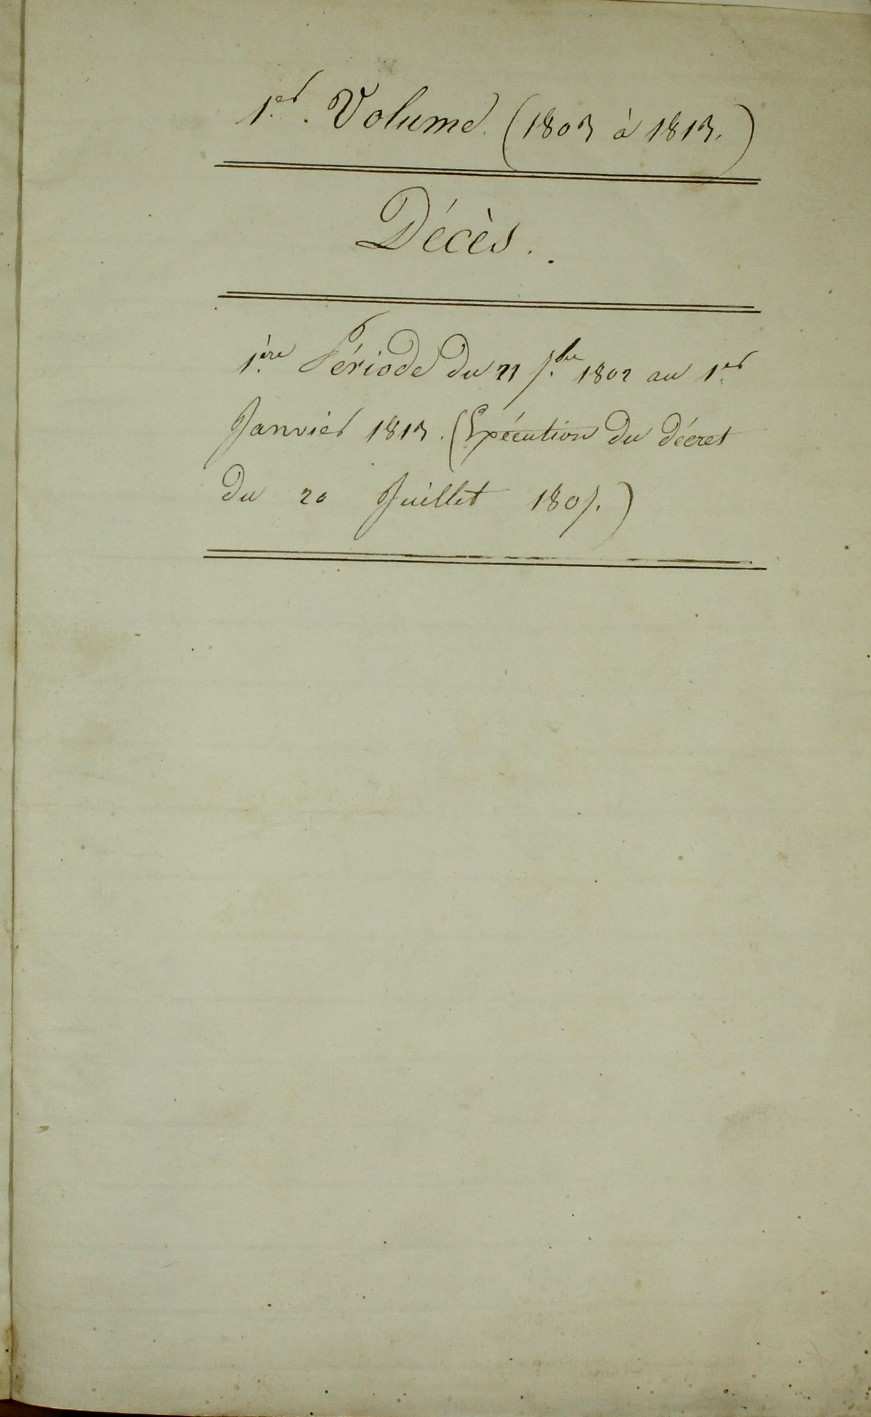 1er. Volume. (1803 à 1813.)
Décès.
1ère Période du 21 7.bre 1802 au 1er
Janvier 1813. (Exécution du décret
du 20 Juillet 1807.)